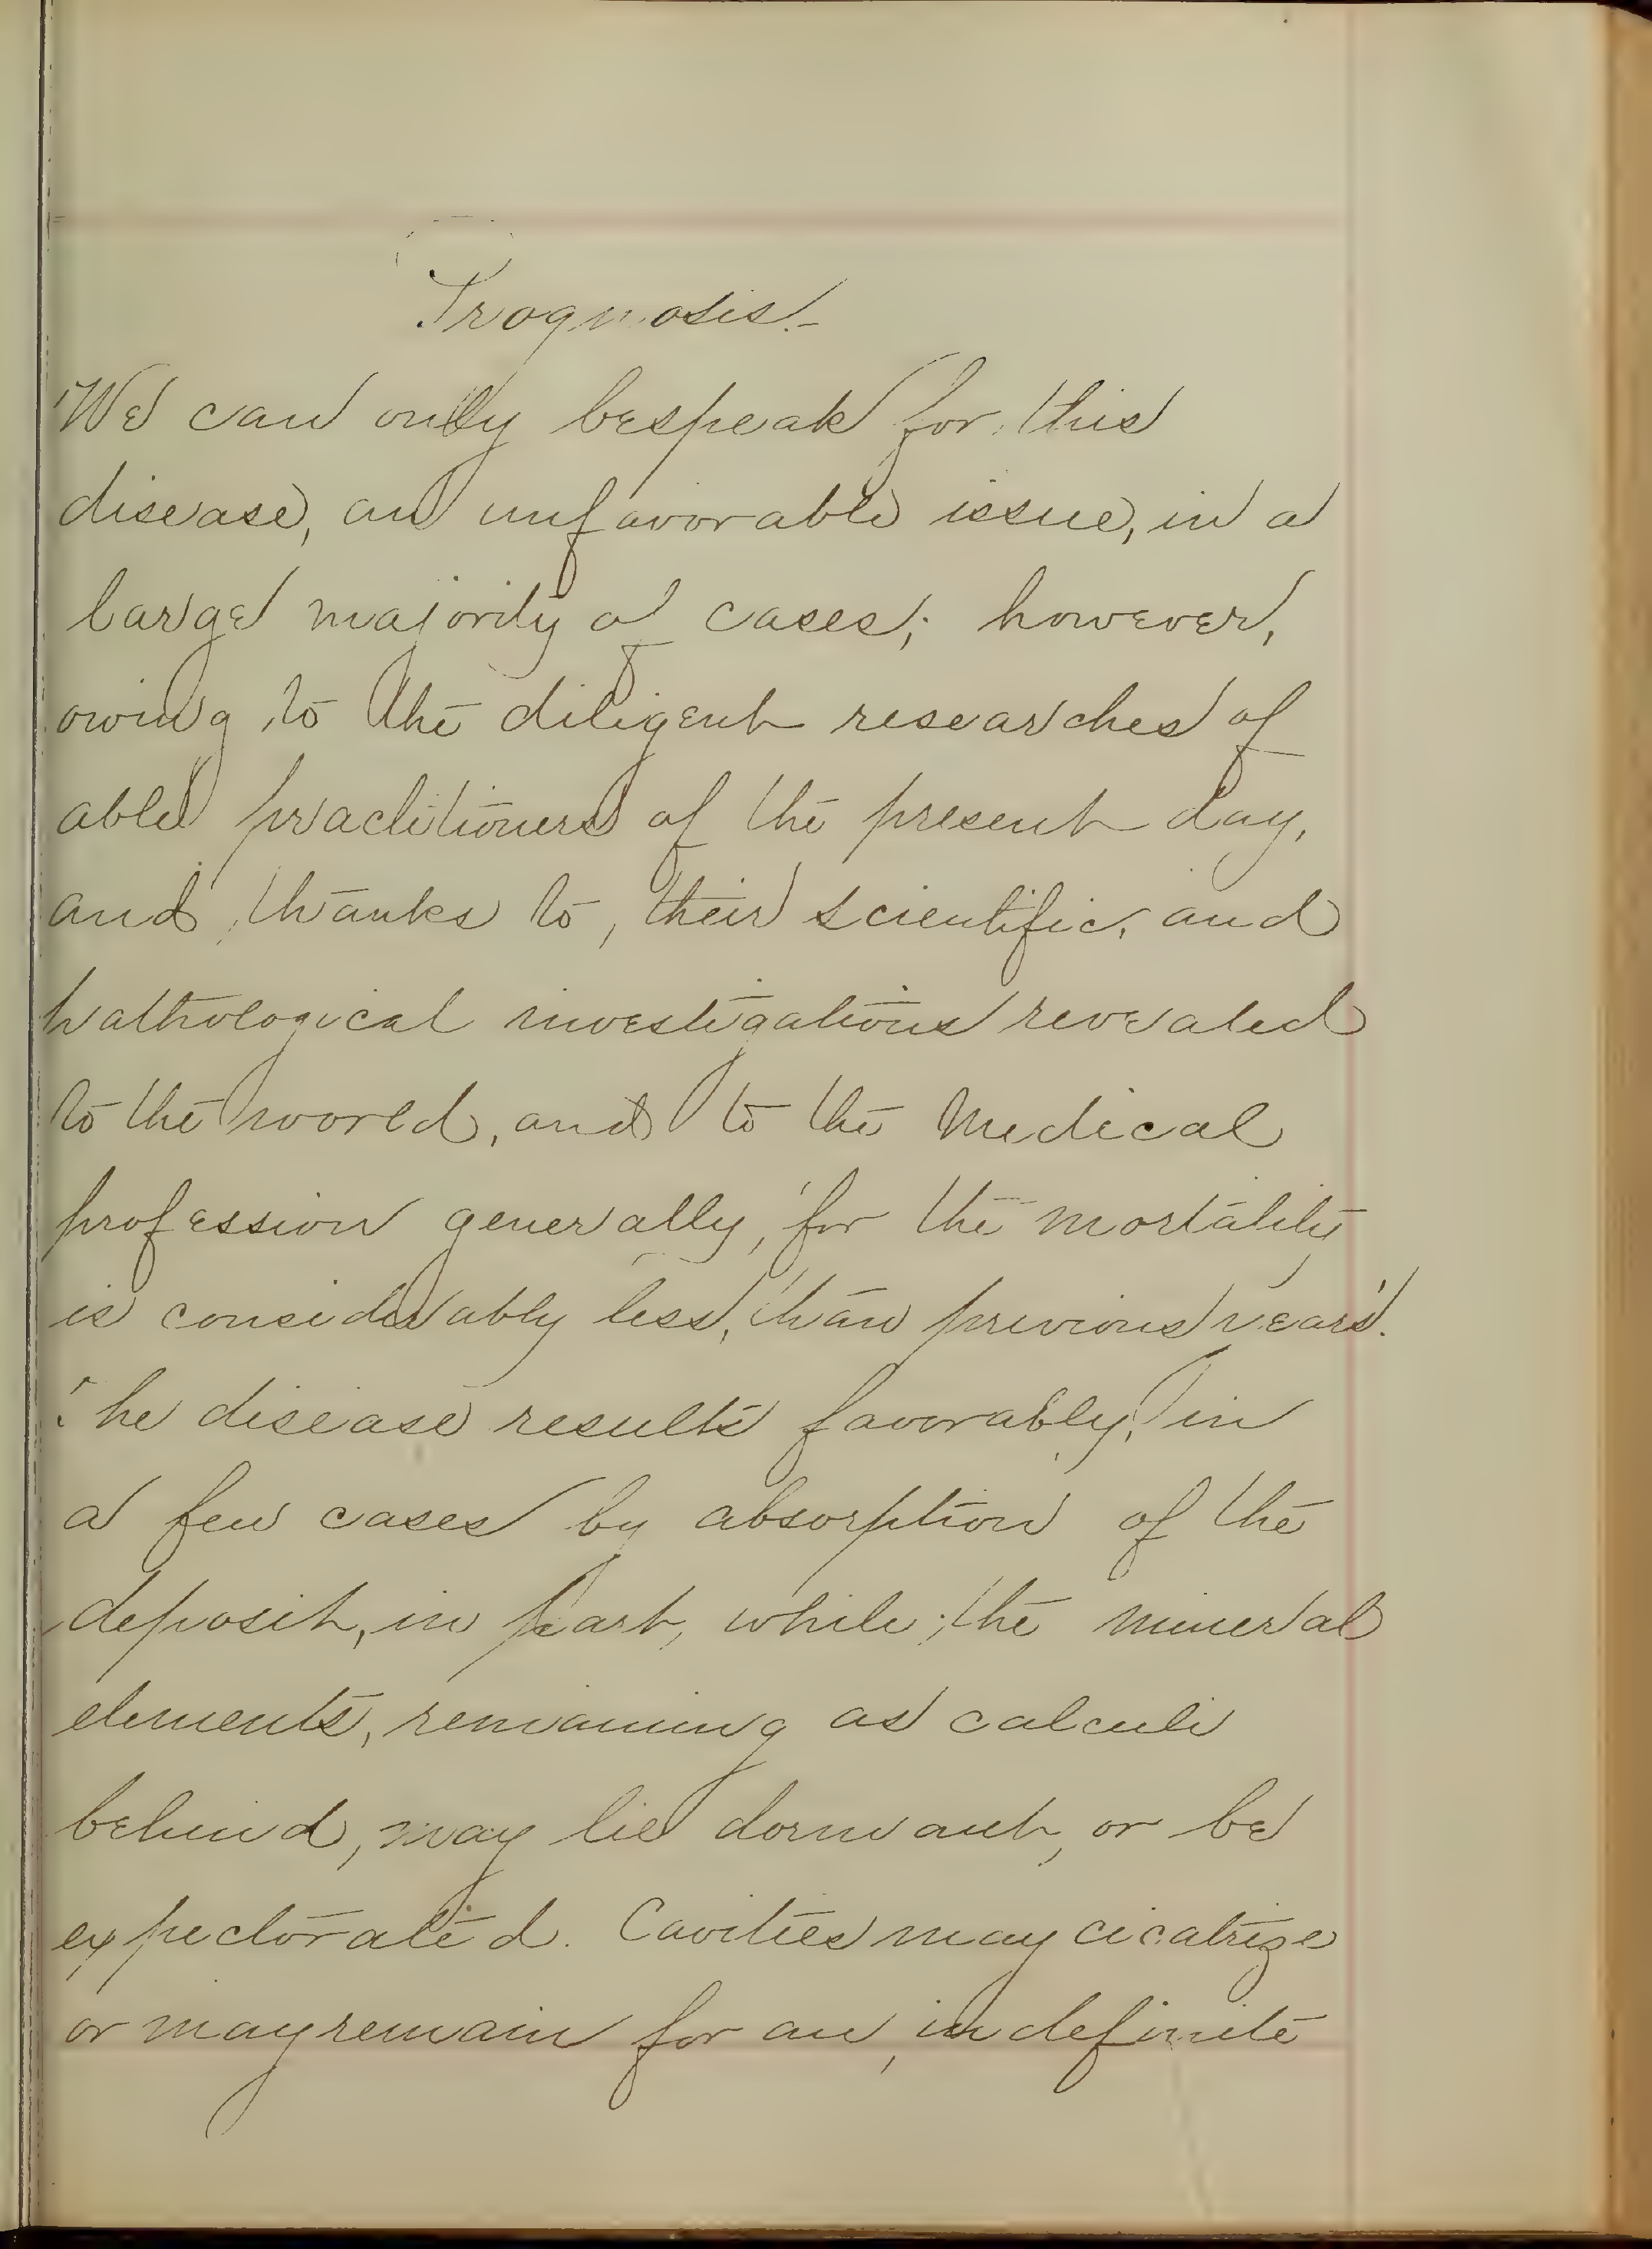 Prognosis.-
We can only bespeak for this
disease, an unfavorable issue, in a
large majority of cases; however,
owing to the diligent researches of
able practitioners of the present day,
and, thanks to, their scientific, and
pathological investigations revealed
to the world, and to the Medical
profession generally, for the mortality
is considerably less, than previous years.
The disease results favorably, in
a few cases by absorption of the
deposit, in part, while, the mineral
elements, remaining as calculi
behind, may lie dormant, or be
expectorated. Cavities may cicatrize
or may remain for an, indefinite